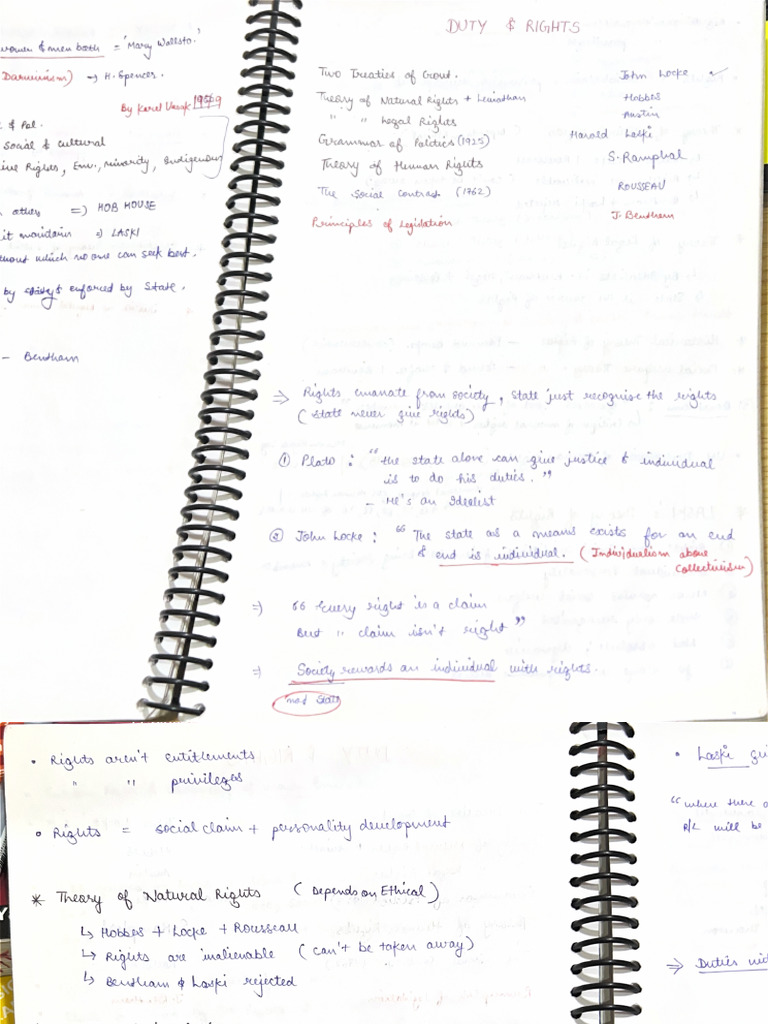 women & men both = 'Mary Wallsto.'
Darwinism) → H. Spencer.
By Karel Vasak 1979
& Pol.
Social & cultural
Rights, Env., minority, Indigenous
n others => HOB HOUSE
it maintains => LASKI
without which no one can seek best.
by society & enforced by State.
– Bentham
DUTY & RIGHTS
Two Treaties of Govt. John Locke ✓
Theory of Natural Rights + Leviathan Hobbes
" " Legal Rights Austin
Grammar of Politics (1925) Harold Laski
Theory of Human Rights S. Ramphal
The Social Contract (1762) ROUSSEAU
Principles of Legislation J. Bentham
⇒ Rights emanate from society, State just recognise the rights
(State never give rights)
① Plato : "the state alone can give justice & individual
is to do his duties."
– He's an Idealist
② John Locke : "The state as a means exists for an end
& end is individual. (Individualism above
Collectivism)
⇒ "Every right is a claim
But " claim isn't right"
⇒ Society rewards an individual with rights.
not State
• Rights aren't entitlements
" " privileges
• Rights = social claim + personality development
* Theory of Natural Rights (Depends on Ethical)
↳ Hobbes + Locke + Rousseau
↳ Rights are inalienable (can't be taken away)
↳ Bentham & Laski rejected
• Laski
"where there
R/L will be
⇒ Duties